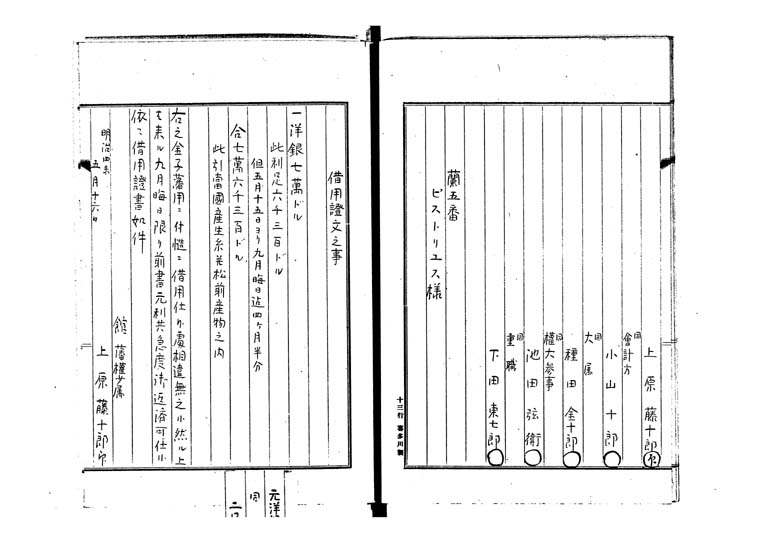 上原藤十郎 印
同 會計方
小山十郎
同 大属
種田金十郎
同 權大参事
池田弦衛
同 重職
下田東七郎
蘭五番
ピストリユス様
十三行 喜多川製
借用證文之事
一洋銀七萬ドル
此利足六千三百ドル
但五月十五日ヨリ九月晦日迄四ヶ月半分
合七萬六千三百ドル
此引當國産生糸并松前産物之内
右之金子藩用ニ付慥ニ借用仕候處相違無之候然ル上
ハ来ル九月晦日限リ前書元利共急度御返済可仕候
依ニ借用證書如件
明治四未
五月十六日
館藩權少属
上原藤十郎 印
元洋
同